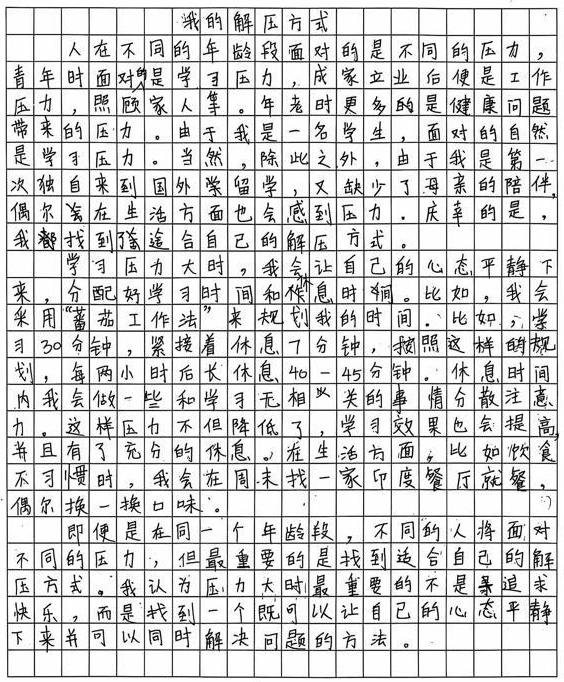 我的解压方式
人在不同的年龄段面对的是不同的压力，
青年时面对的是学习压力，成家立业后便是工作
压力，照顾家人等。年老时更多的是健康问题
带来的压力。由于我是一名学生，面对的自然
是学习压力。当然，除此之外，由于我是第一
次独自来到国外来留学，又缺少了母亲的陪伴，
偶尔会在生活方面也会感到压力。庆幸的是，
我都找到了适合自己的解压方式。
学习压力大时，我会让自己的心态平静下
来，分配好学习时间和休息时间。比如，我会
采用“蕃茄工作法”来规划我的时间。比如，学
习30分钟，紧接着休息7分钟，按照这样的规
划，每两小时后长休息40－45分钟。休息时间
内我会做一些和学习无相关的事情分散注意
力。这样压力不但降低了，学习效果也会提高，
并且有了充分的休息。在生活方面，比如饮食
不习惯时，我会在周末找一家印度餐厅就餐，
偶尔换一换口味。:)
即便是在同一个年龄段，不同的人将面对
不同的压力，但最重要的是找到适合自己的解
压方式。我认为压力大时最重要的不是追求
快乐，而是找到一个既可以让自己的心态平静
下来并可以同时解决问题的方法。